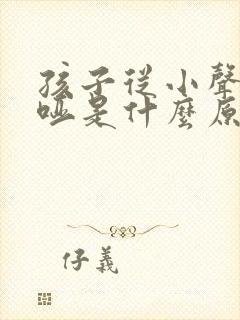 孩子從小聲
啞是什麼原
仔義